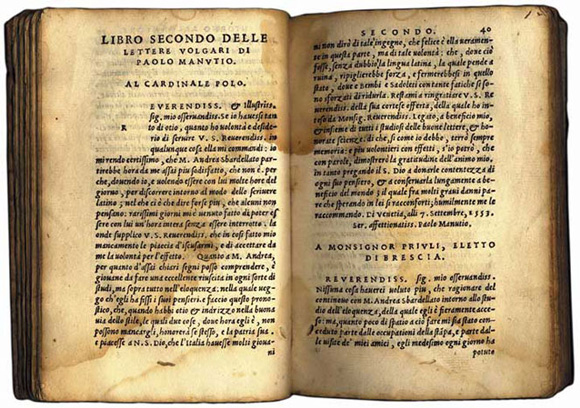 LIBRO SECONDO DELLE
LETTERE VOLGARI DI
PAOLO MANUTIO.
AL CARDINALE POLO.
R EVERENDISS. & Illustriss.
sig. mio osseruandiss. se io hauessi tan
to di otio, quanto ho volontà e deside-
rio di seruire V. S. Reuerendiss. in
qualunque cosa ella mi commandi: io
mi rendo certissimo, che M. Andrea Sbardellato partirebbe
hora da me assai piu sodisfatto, che non è. per
che, douendo io, e uolendo essere con lui molte hore del
giorno, per discorrere intorno al modo dello scriuere
latino; nel che ciò che dire forse più, che alcuni non
pensano: rarissimi giorni mi è uenuto fatto di poter es
sere con lui un' hora intera senza essere interrotto. la
onde supplico V. S. Reuerendiss. che in cosi fatto mio
mancamento le piaccia d'iscusarmi, e di accettare da
me la volontà per l'effetto. Quanto a M. Andrea,
per quanto d'assai chiari segni posso comprendere, è
giouane da fare una eccellente riuscita in ogni sorte di
studi, ma sopra tutto nell'eloquenza: nella quale ueg
go ch'egli ha fissi i suoi pensieri. e faccio questo prono
stico, che, quando habbi otio & indrizzo nella buona
uia dello stile, le quali due cose, doue hora egli è, non
possono mancargli, honorerà se stesso, e la patria sua.
e piacesse a N. S. Dio, che l'Italia hauesse molti gioua
ni
SECONDO. 40
ni non dirò di tale ingegno, che felice è ella ueramen-
te in questa parte, ma di tale volontà: che, doue ciò
fosse, senza dubbio la lingua latina, la quale pende a
ruina, ripiglierebbe forza, e fermerebbesi in quello
stato, doue i Bembi e Sadoleti con tante fatiche si fo
no sforzati di ridurla. Restami a ringratiare V. S. R
euerendiss. della sua cortese offerta, della quale ho in
teso da Monsig. Reuerendiss. Legato, a beneficio mio,
& insieme di tutti i studiosi delle buone lettere, & ho
norate scienze. di che, si come io debbo, terrò sempre
memoria: e piu volentieri con effetti, s'io potrò, che
con parole, dimostrerò la gratitudine dell'animo mio.
in tanto pregando il S. Dio a donarle contentezza di
ogni suo pensiero, & a conseruarla lungamente a be
neficio del mondo; il quale fra molti graui danni pa
re che sperando in lei si racconforti; humilmente me le
raccommando. Di Venetia, alli 7. Settembre, 1553.
Ser. affettionatiss. Paolo Manutio.
A MONSIGNOR PRIVLI, ELETTO
DI BRESCIA.
REVERENDISS. sig. mio osseruandiss.
Nissuna cosa hauerei voluto piu, che ragionare del
continouo con M. Andrea Sbardellato intorno allo studio
dell'eloquenza, della quale egli è fieramente acce-
so; ma, quanto poco di spatio a ciò fare mi sia stato con
ceduto parte dalle occupationi della stāpa, e parte dal-
le uisite de' miei amici, egli medesimo ogni giorno ha
potuto